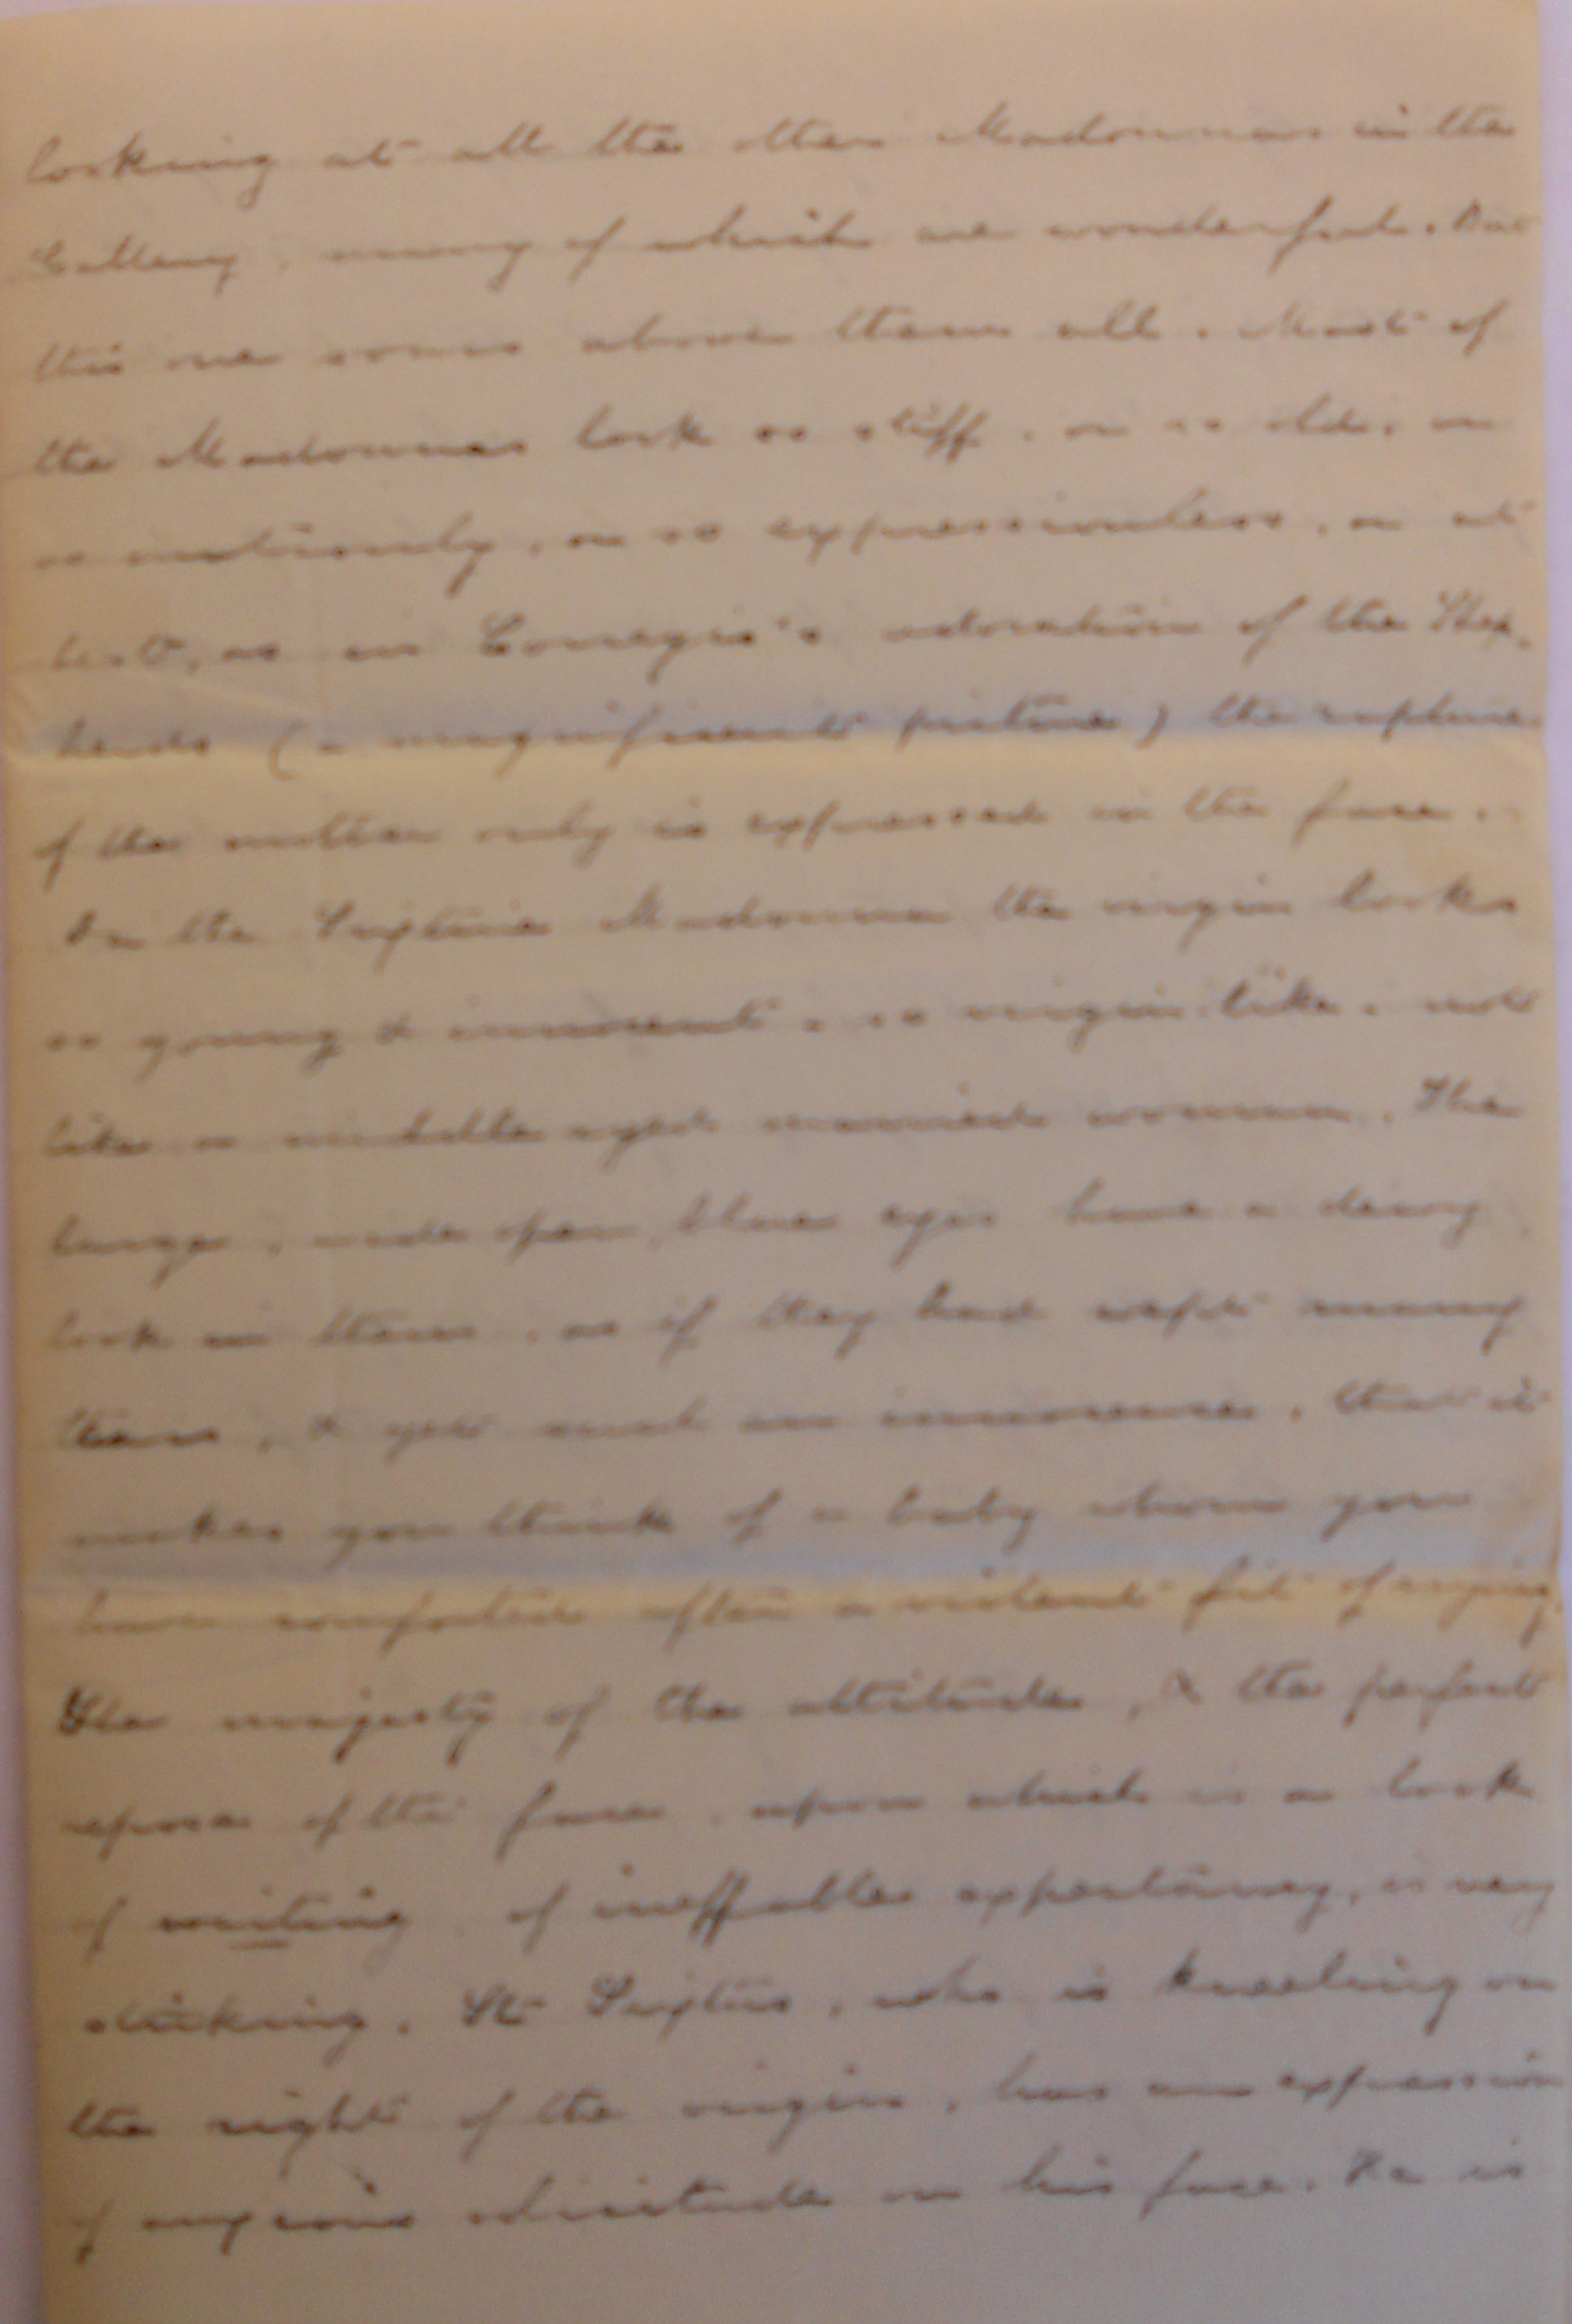 looking at all the other Madonnas in the
Gallery, many of which are wonderful. But
this one soars above them all. Most of
the Madonnas look so stiff, or so old, or
so matronly, or so expressionless, or at
best, as in Corregio's adoration of the Shep-
herds (a magnificent picture) the rapture
of the mother only is expressed in the face.
In the Sixtine Madonna the virgin looks
so young & innocent, so virgin like, not
like a middle aged married woman. The
large, wide open, blue eyes have a dewy
look in them, as if they had wept many
tears, & yet such an innocence, that it
makes you think of a baby whom you
have comforted after a violent fit of crying.
The majesty of the attitude, & the perfect
repose of the face, upon which is a look
of waiting, of ineffable expectancy, is very
striking. St Sixtus, who is kneeling on
the right of the virgin, has an expression
of anxious solicitude on his face. He is